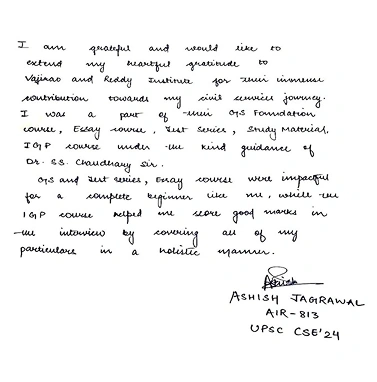 I am grateful and would like to
extend my heartful gratitude to
Vajirao and Reddy Institute for their immense
contribution towards my civil services journey.
I was a part of their GS Foundation
course, Essay course, Test Series, Study Material,
IGP course under the kind guidance of
Dr. S.S. Chaudhary Sir.
GS and Test series, Essay course were impactful
for a complete beginner like me, while the
IGP course helped me score good marks in
the interview by covering all of my
particulars in a holistic manner.
Ashish
ASHISH JAGRAWAL
AIR-813
UPSC CSE'24